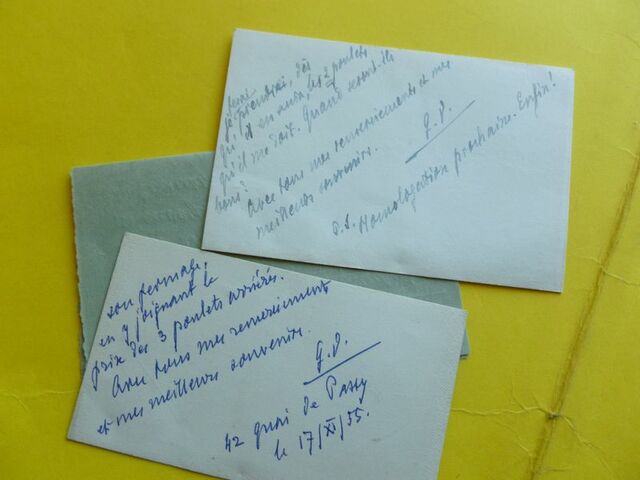 je prendrai, dès
qu'il en aura, les 2 poulets
qu'il me doit. Quand seront-ils
bons?
Avec tous mes remerciements et mes
meilleurs souvenirs.
G.D.
P.S. Homologation prochaine. Enfin!
son fermage,
en y joignant le
prix des 3 poulets arriérés.
Avec tous mes remerciements
et mes meilleurs souvenirs.
G.D.
42 quai de Passy
le 17/XI/55.